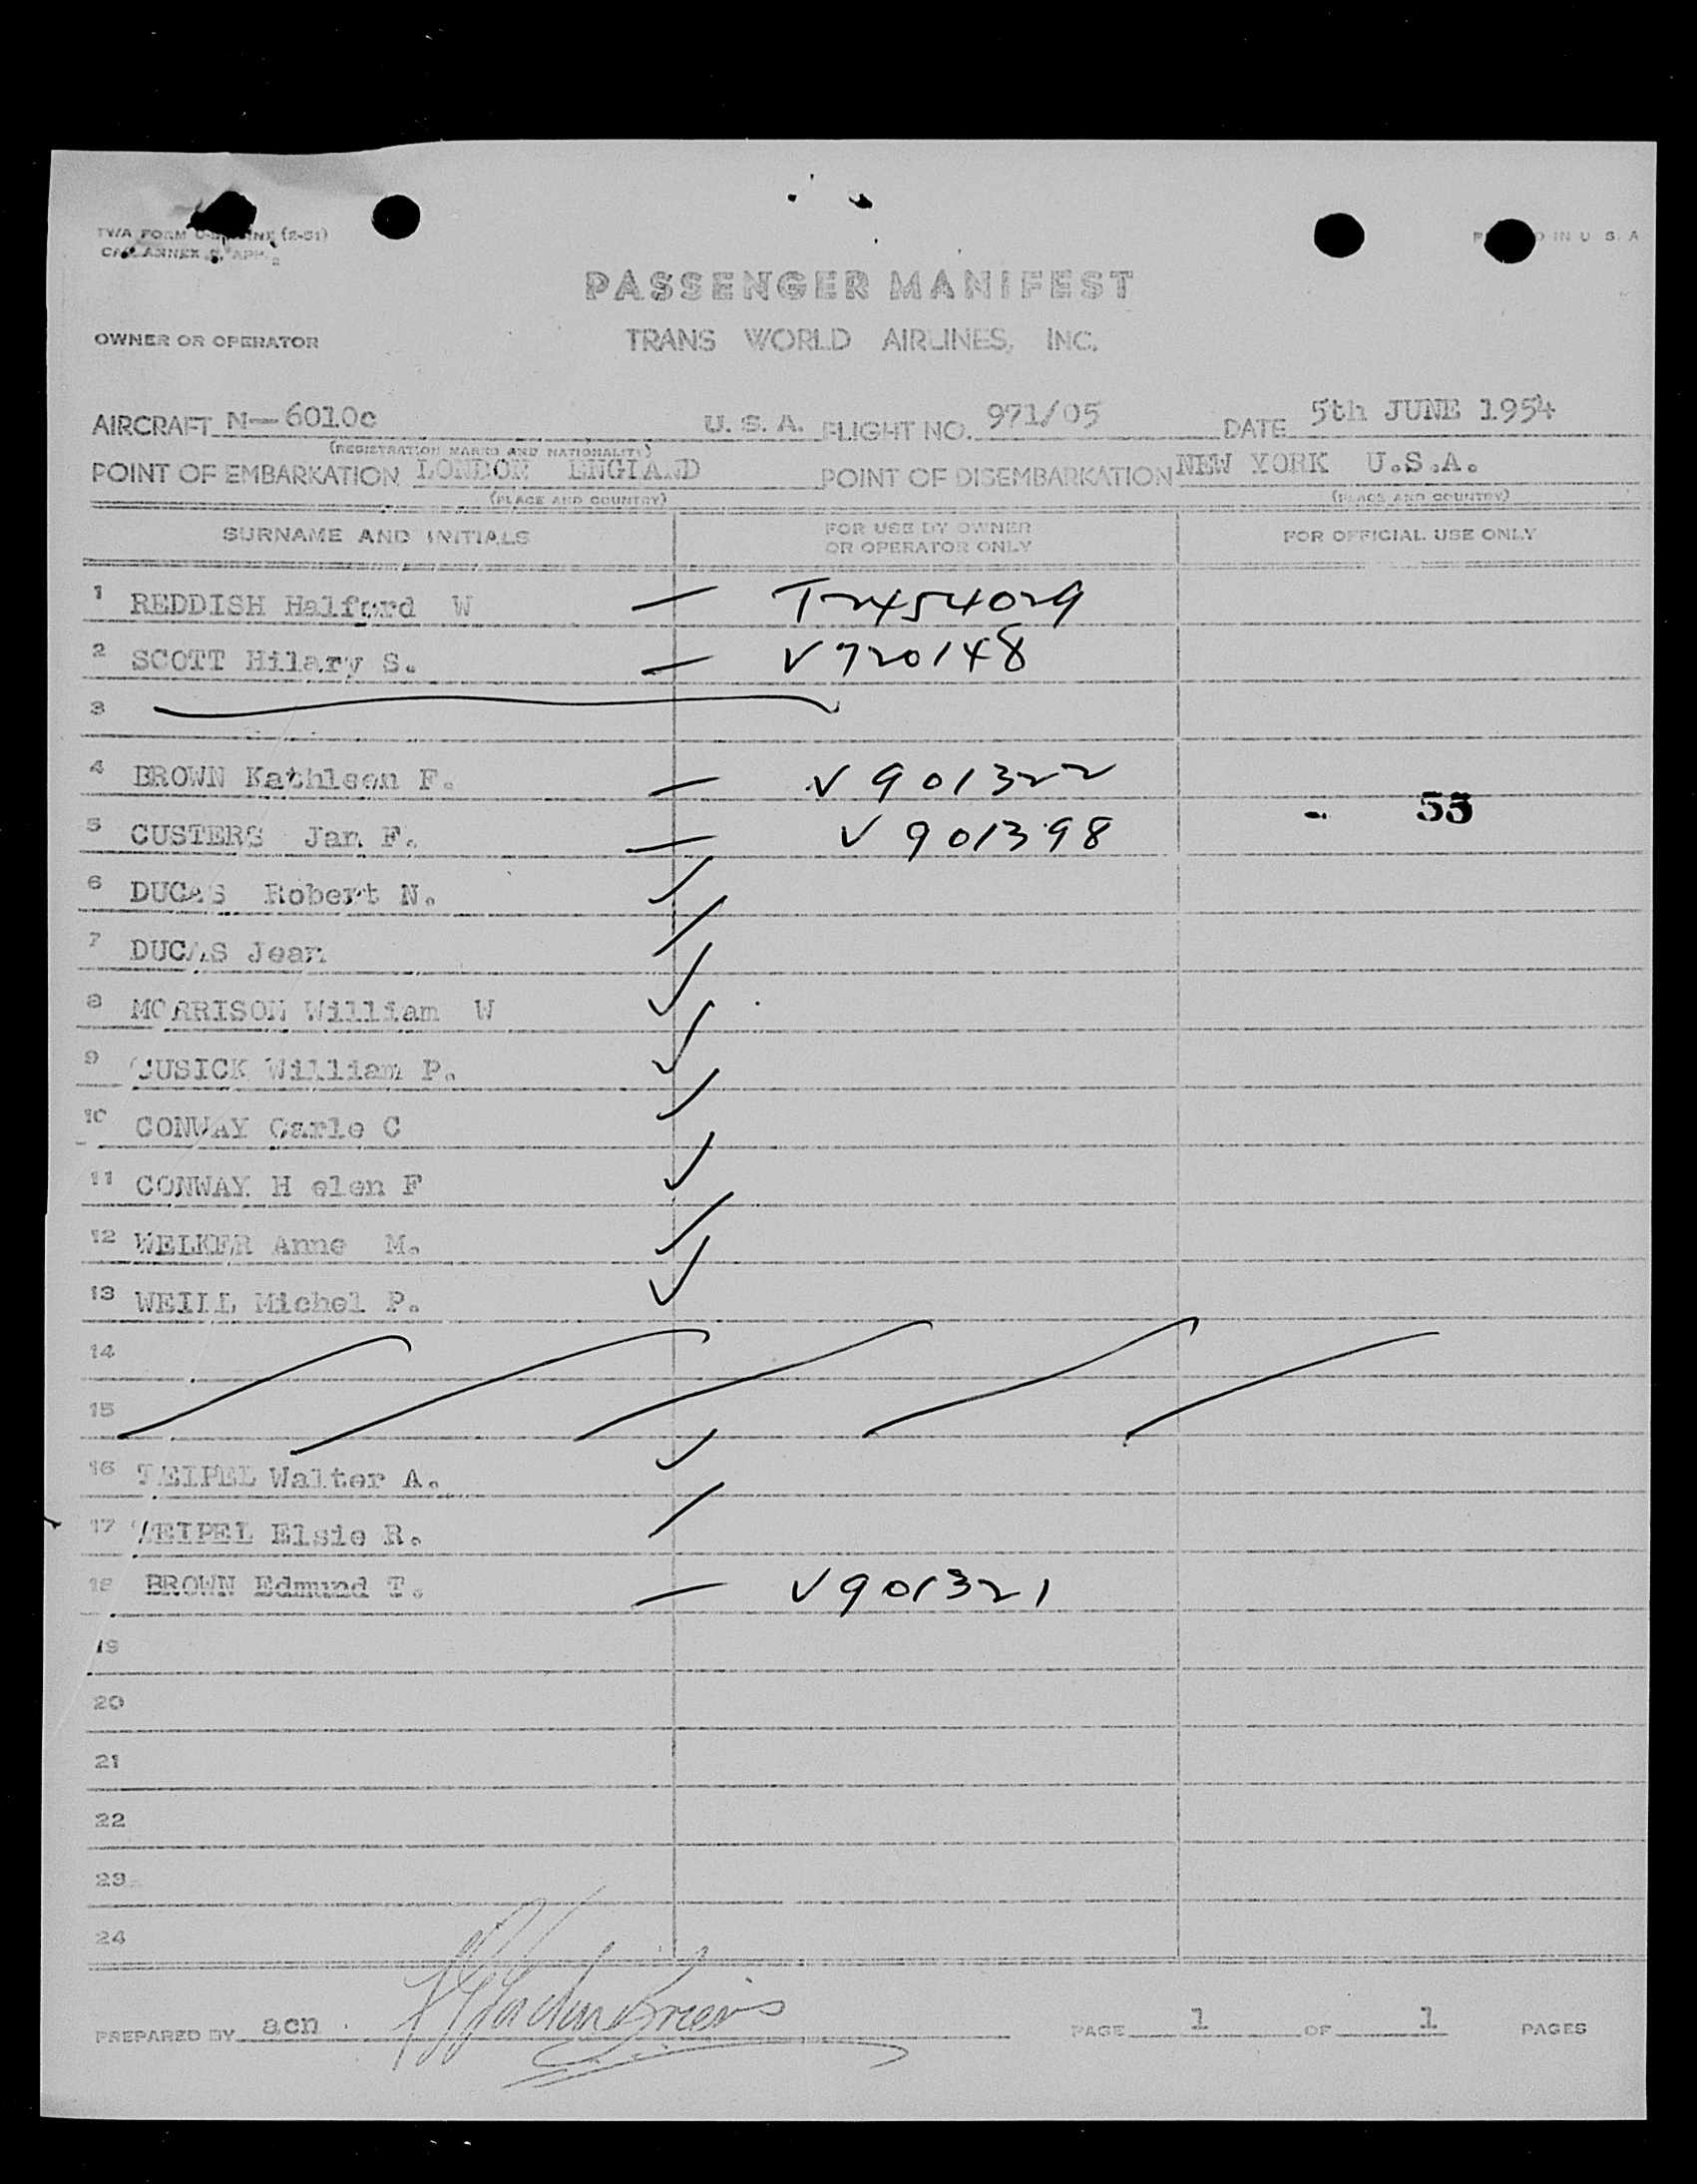 TWA FORM (2-51)
ANNEX
IN U. S. A
PASSENGER MANIFEST
OWNER OR OPERATOR TRANS WORLD AIRLINES, INC.
AIRCRAFT N-6010c U. S. A. FLIGHT NO. 971/05 DATE 5th JUNE 1954
(REGISTRATION MARKS AND NATIONALITY)
POINT OF EMBARKATION LONDON ENGLAND POINT OF DISEMBARKATION NEW YORK U.S.A.
(PLACE AND COUNTRY) (PLACE AND COUNTRY)
SURNAME AND INITIALS FOR USE BY OWNER OR OPERATOR ONLY FOR OFFICIAL USE ONLY
1 REDDISH Halford W — T2454029
2 SCOTT Hilary S. — V720148
3
4 BROWN Kathleen F. — V901322
55
5 CUSTERS Jan F. — V901398
6 DUCAS Robert N. ✓
7 DUCAS Jean ✓
8 MORRISON William W ✓
9 CUSICK William P. ✓
10 CONWAY Carle C ✓
11 CONWAY H elen F ✓
12 WELKER Anne M. ✓
13 WEILL Michel P. ✓
14
15
16 TEIPEL Walter A. ✓
17 TEIPEL Elsie R. ✓
18 BROWN Edmund T. — V901321
19
20
21
22
23
24
PREPARED BY acn PAGE 1 OF 1 PAGES